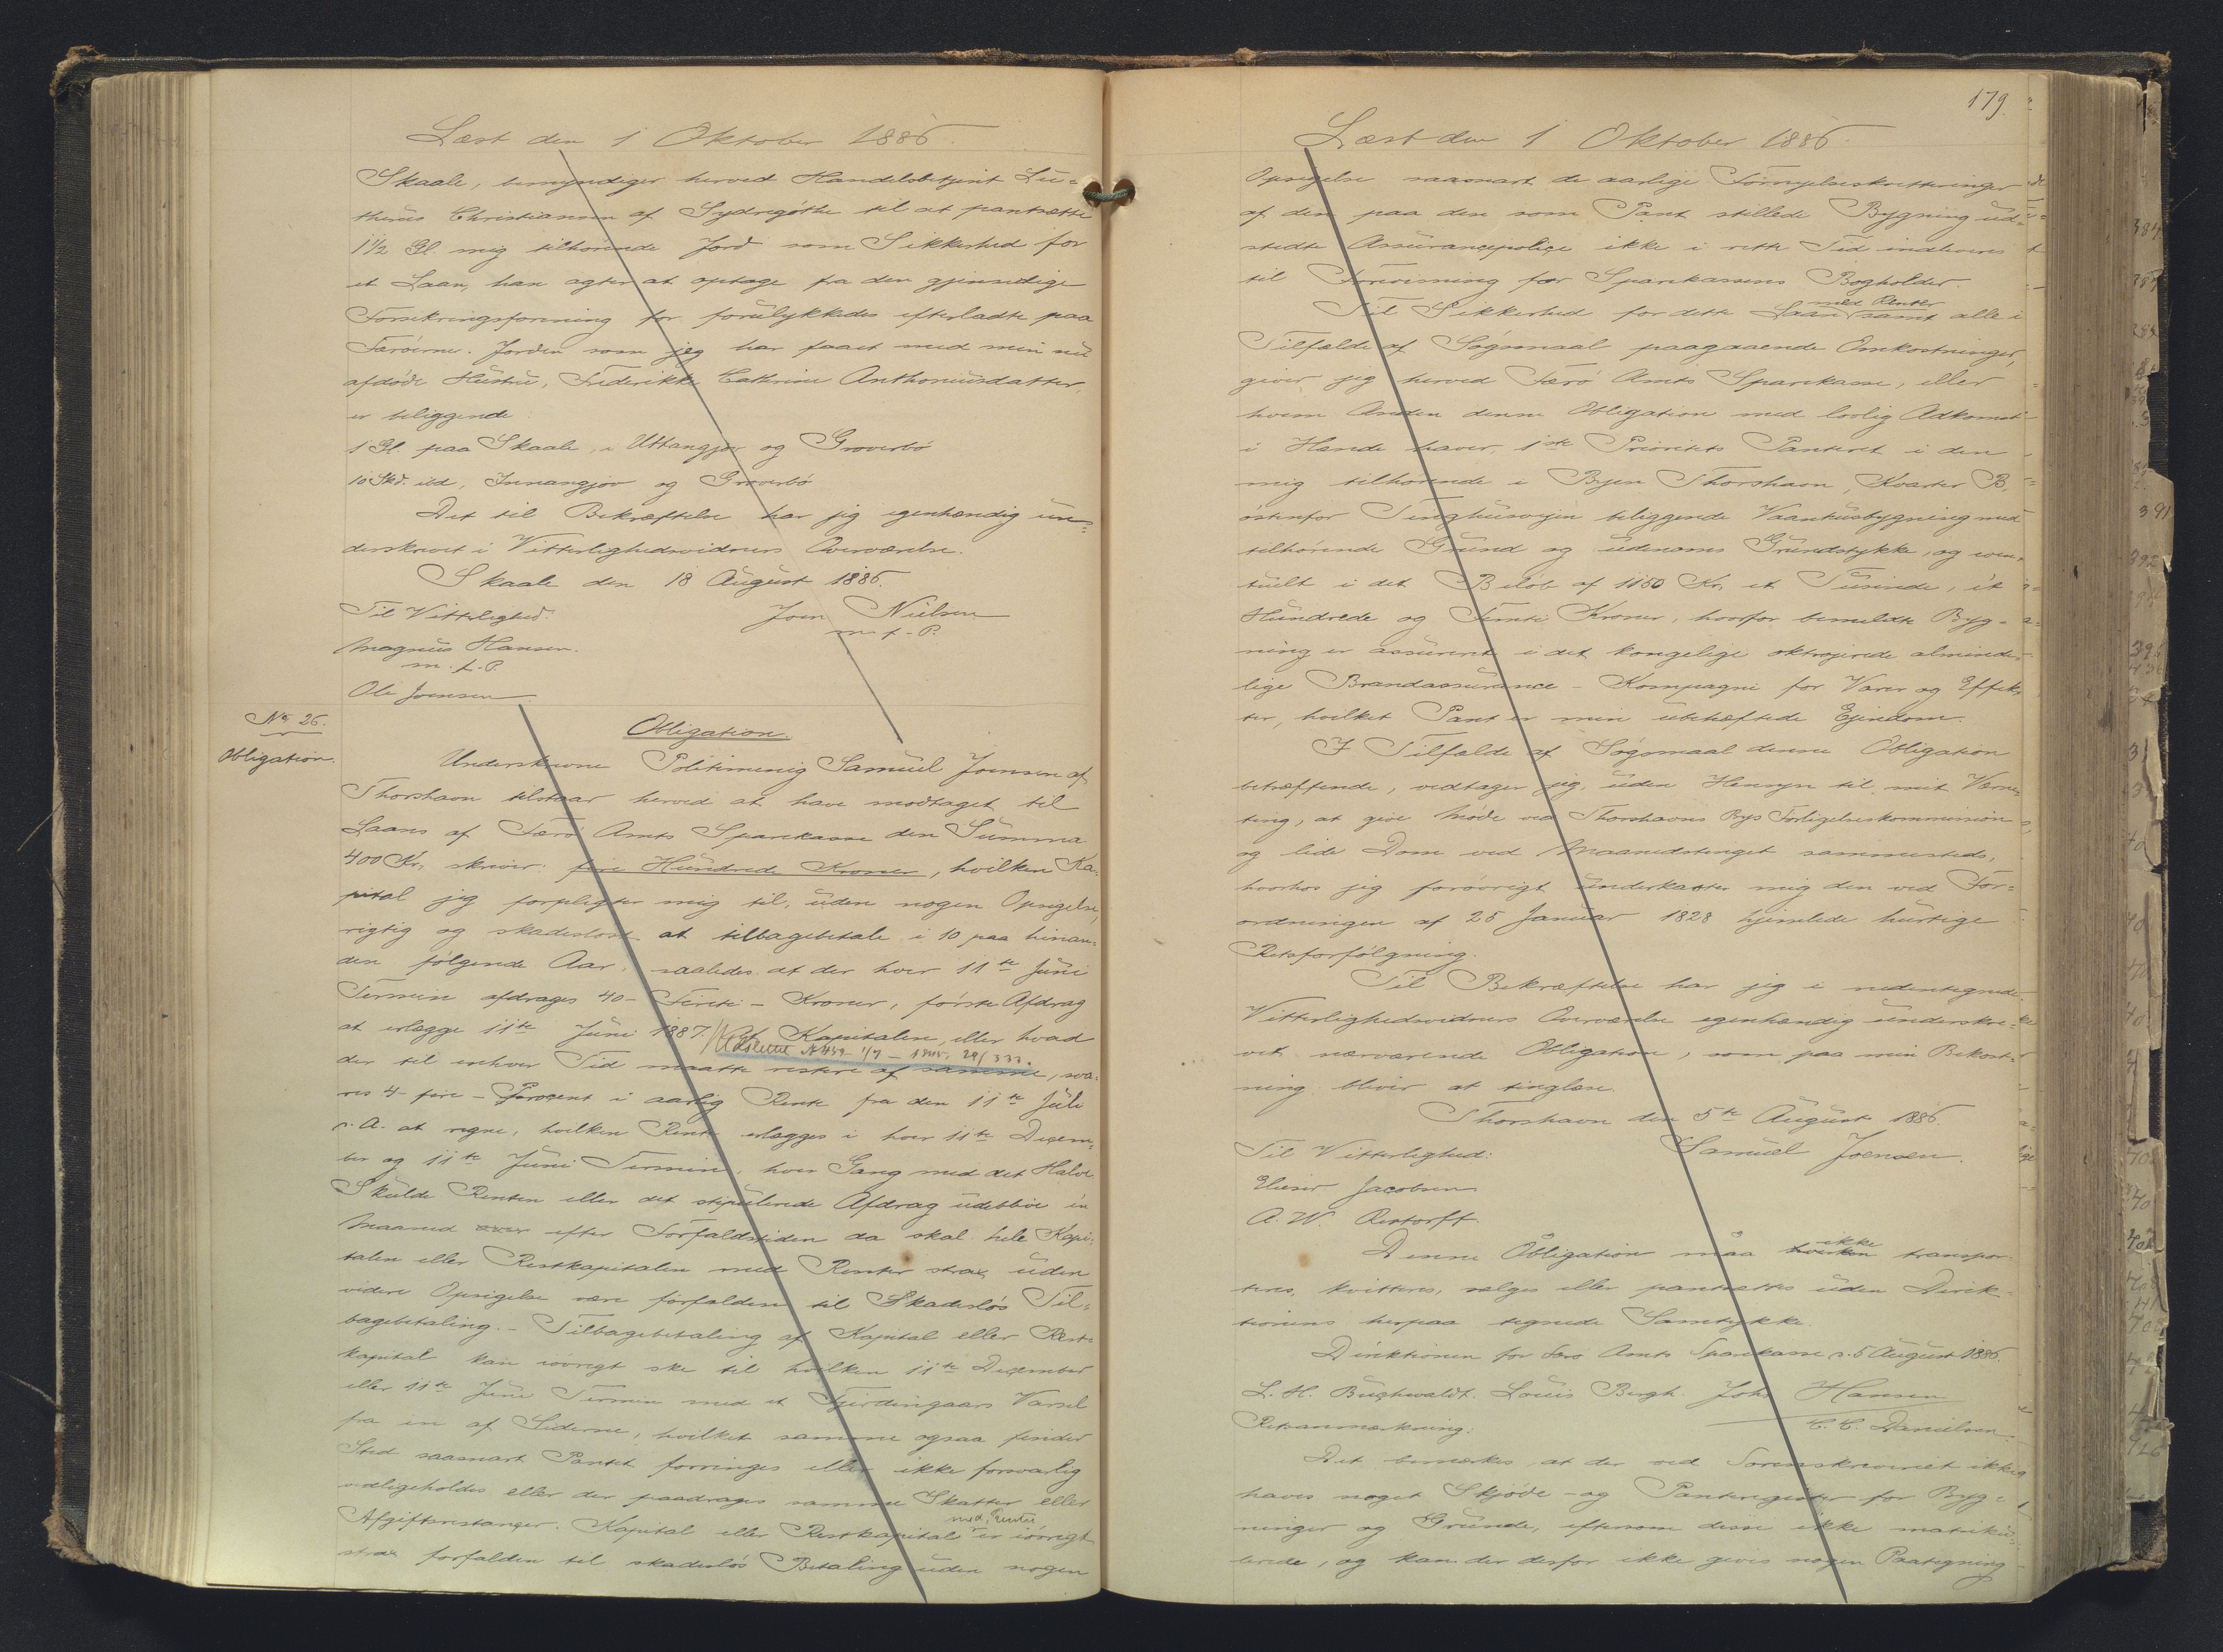 Læst den 1 Oktober 1886.
Skaale, bemyndiger herved Handelsbetjent Lu-
therus Christiansen af Sydregöthe til at pantsætte
1 1/2 Gl. mig tilhörende Jord som Sikkerhed for
et Laan, han agter at optage fra den gjensidige
Forsikringsforening for forulykkedes efterladte paa
Færöerne. Jorden som jeg har faaet med min nu
afdöde Hustru, Frederikke Cathrine Anthoniusdatter,
er beliggende:
1 Gl. paa Skaale, i Uttangjov og Groverbö
10 Skd. ibd, Innangjov og Groverbö
Det til Bekræftelse har jeg egenhændig un-
derskrevet i Vitterlighedsvidners Overværelse.
Skaale den 18 August 1886.
Til Vitterlighed:
Joen Nielsen
m. f. P.
Magnus Hansen.
m. f. P.
Ole Joensen
No 26.
Obligation.
Obligation.
Underskrevne Politimenig Samuel Joensen af
Thorshavn tilstaar herved at have modtaget til
Laans af Færö Amts Sparekasse den Summa
400 Kr, skriver: fire Hundrede Kroner, hvilken Ka-
pital jeg forpligter mig til, uden nogen Opsigelse,
rigtig og skadeslöst at tilbagebetale i 10 paa hinan-
den fölgende Aar, saaledes at der hver 11te Juni
Termin afdrages 40 - Firti - Kroner, förste Afdrag
at erlægge 11te Juni 1887. Af Kapitalen, eller hvad
Udslettet N 439 - 1/7 - 1915. 29/333.
der til enhver Tid maatte restere af samme, sva-
res 4 - fire - Procent i aarlig Rente fra den 11te Juli
d. A. at regne, hvilken Rente erlægges i hver 11te Decem-
ber og 11te Juni Termin, hver Gang med det Halve.
Skulde Renten eller det stipulerede Afdrag udeblive én
Maaned over efter Forfaldstiden da skal hele Kapi-
talen eller Restkapitalen med Renter strax uden
videre Opsigelse være forfalden til Skadeslös Til-
bagebetaling. - Tilbagebetaling af Kapital eller Rest-
kapital kan iövrigt ske til hvilken 11te December
eller 11te Juni Termin med et Fjerdingaars Varsel
fra en af Siderne, hvilket samme ogsaa finder
Sted saasnart Pantet forringes eller ikke forsvarlig
vedligeholdes eller der paadrages samme Skatter eller
Afgiftsrestancer. Kapital eller Restkapital med Renter er iövrigt
strax forfalden til skadeslös Betaling uden nogen
179.
Læst den 1 Oktober 1886.
Opsigelse saasnart de aarlige Fornyelseskvitteringer
af den paa den som Pant stillede Bygning ud-
stedte Assurancepolice ikke i rette Tid indleveres
til Forevisning for Sparekassens Bogholder.
Til Sikkerhed for dette Laan med Renter samt alle i
Tilfælde af Sögsmaal paagaaende Omkostninger,
giver jeg herved Færö Amts Sparekasse, eller
hvem Anden denne Obligation med lovlig Adkomst
i Hænde haver, 1ste Prioritets Panteret i den
mig tilhörende i Byen Thorshavn, Kvarter B,
östenfor Tinghusvejen beliggende Vaanhusbygning med
tilhörende Grund og udenoms Grundstykke, og even-
tuelt i det Belöb af 1150 Kr, et Tusinde, ét
Hundrede og Femti Kroner, hvorfor bemeldte Byg-
ning er assureret i det kongelige oktrojerede alminde-
lige Brandassurance - Kompagni for Varer og Effek-
ter, hvilket Pant er min ubehæftede Ejendom.
I Tilfælde af Sögsmaal denne Obligation
betræffende, vedtager jeg, uden Hensyn til mit Værne-
ting, at give Möde ved Thorshavns Bys Forligelseskommission
og lide Dom ved Maanedstinget sammesteds,
hvorhos jeg forövrigt underkaster mig den ved For-
ordningen af 25 Januar 1828 hjemlede hurtige
Retsforfölgning.
Til Bekræftelse har jeg i nedentegnede
Vitterlighedsvidners Overværelse egenhændig underskre-
vet nærværende Obligation, som paa min Bekost-
ning bliver at tinglæse.
Thorshavn den 5te August 1886.
Til Vitterlighed:
Samuel Joensen.
Elieser Jacobsen
A. W. Restorff.
Denne Obligation maa hverken ikke transpor-
teres, kvitteres, sælges eller pantsættes uden Direk-
tionens herpaa tegnede Samtykke.
Direktionen for Færö Amts Sparekasse d. 5 August 1886.
L. H. Buchwaldt. Louis Bergh. Johs Hansen
C. C. Danielsen.
Retsanmærkning:
Det bemærkes, at der ved Sorenskriveriet ikke
haves noget Skjöde- og Panteregister for Byg-
ninger og Grunde, eftersom disse ikke matriku-
lerede, og kan der derfor ikke gives nogen Paategning